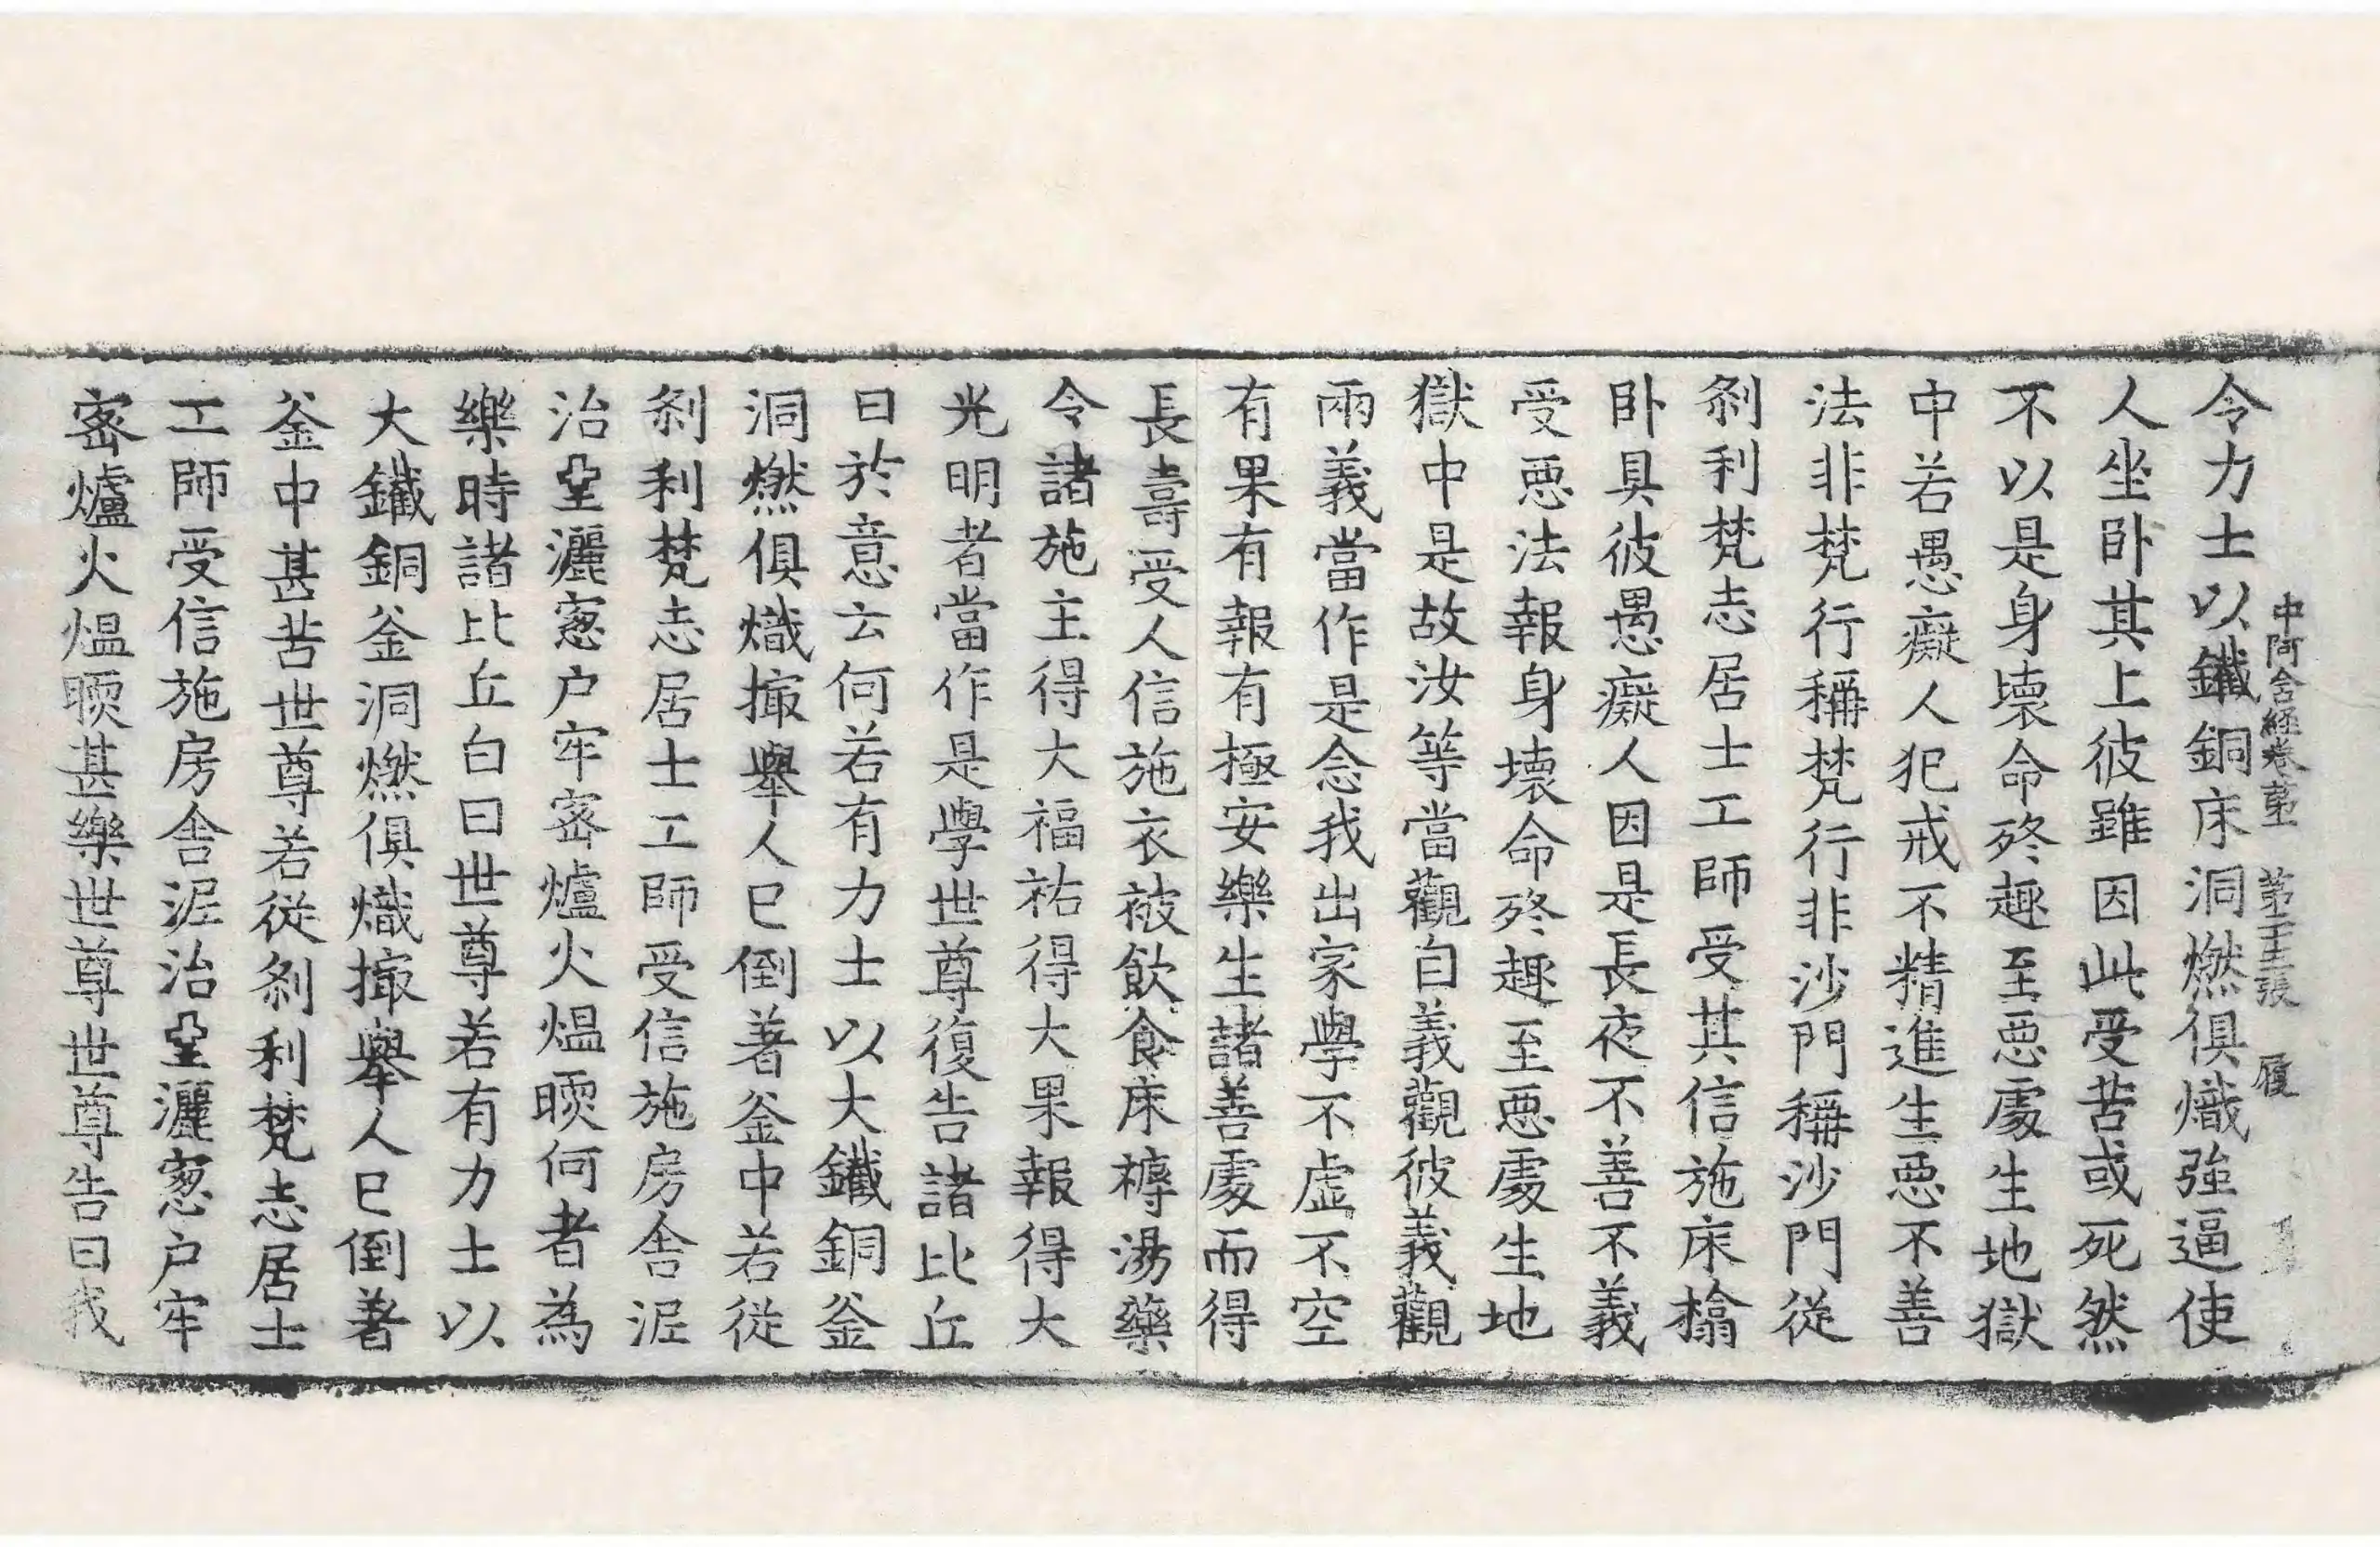 中阿含經卷第 第 張 履
令力士以鐵銅床洞燃俱熾強逼使
人坐卧其上彼雖因此受苦或死然
不以是身壞命終趣至惡處生地獄
中若愚癡人犯戒不精進生惡不善
法非梵行稱梵行非沙門稱沙門從
剎利梵志居士工師受其信施床榻
卧具彼愚癡人因是長夜不善不義
受惡法報身壞命終趣至惡處生地
獄中是故汝等當觀自義觀彼義觀
兩義當作是念我出家學不虛不空
有果有報有極安樂生諸善處而得
長壽受人信施衣被飲食床褥湯藥
令諸施主得大福祐得大果報得大
光明者當作是學世尊復告諸比丘
曰於意云何若有力士以大鐵銅釜
洞燃俱熾撮舉人已倒著釜中若從
剎利梵志居士工師受信施房舍泥
治堊灑窻户牢密爐火熅㬉何者為
樂時諸比丘白曰世尊若有力士以
大鐵銅釜洞燃俱熾撮舉人已倒著
釜中甚苦世尊若從剎利梵志居士
工師受信施房舍泥治堊灑窻户牢
密爐火熅㬉甚樂世尊世尊告曰我